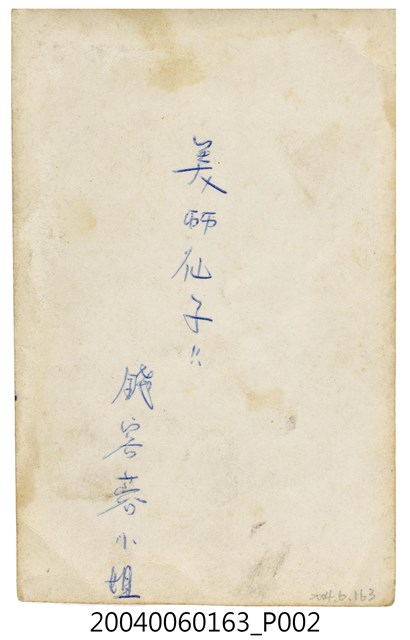 美師仙子!!
錢蓉蓉小姐
2004.6.163
20040060163_P002